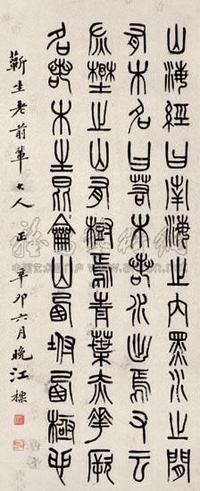 山海經曰南海之內黑水之間
有木名曰若木若水出焉又云
灰野之山有樹焉青葉赤華厥
名若木生昆侖山西坿西極也
蘄生老前輩大人 正 辛卯六月晚江標